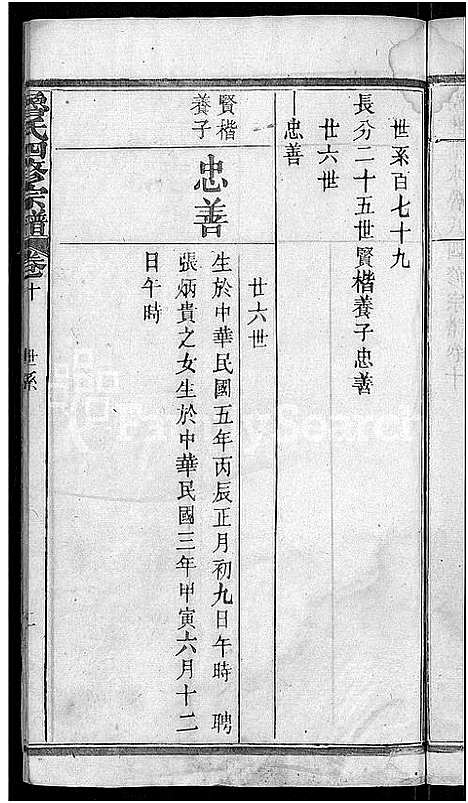 世系百七十九
長分二十五世賢楷養子忠善
廿六世
忠善
廿六世
賢楷
養子
忠善
生於中華民國五年丙辰正月初九日午時 聘
張炳貴之女生於中華民國三年甲寅六月十二
日午時
氏四修宗譜
卷十
世系